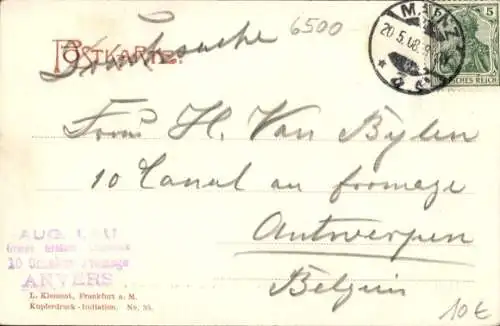 6500
Drucksache
POSTKARTE.
MAINZ
20.5.08.
5
DEUTSCHES REICH
H. Van Bylen
10 Canal au fromage
Antwerpen
Belgien
AUG.
10 Fromage
ANVERS
L. Klement, Frankfurt a. M.
Kupferdruck-Imitation. No. 35.
10€